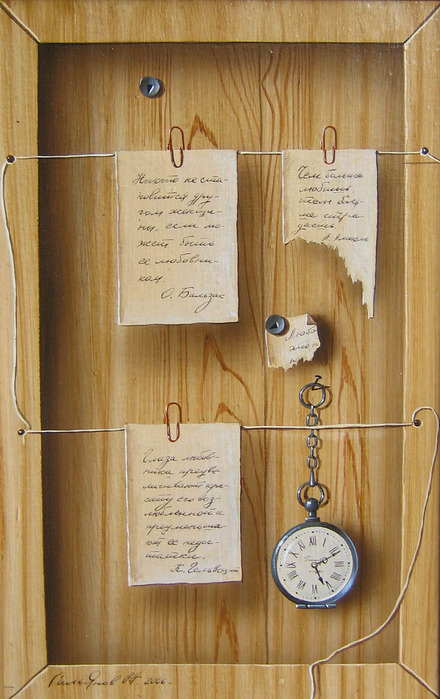 Никто не ста-
новится дру-
гом женщи-
ны, если мо-
жет быть
ее любовни-
ком.
О. Бальзак
Чем больше
любишь,
тем боль-
ше стра-
даешь
А. Амьель
Глаза любов-
ника преуве-
личивают кра-
соту его воз-
любленной и
преуменьша-
ют ее недо-
статки.
К. Гельвеций